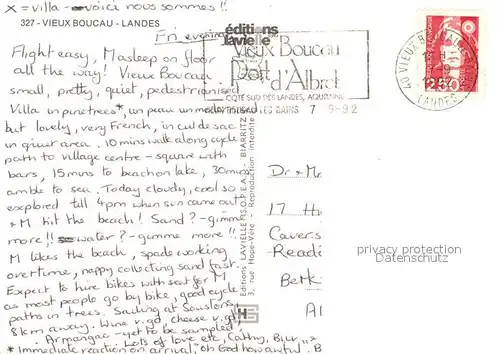 x = villa - voici nous sommes !!
327 - VIEUX BOUCAU - LANDES
Fri evening
éditions
lavielle
Flight easy, M asleep on floor
all the way! Vieux Boucau
small, pretty, quiet, pedestrianised.
Villa in pinetrees*, un peau un modernised
but lovely, very French, in cul de sac
in quiet area. 10 mins walk along cycle
path to village centre - square with
bars, 15 mins to beach on lake, 30 mins
amble to sea. Today cloudy, cool so
explored till 4pm when sun came out
& M hit the beach! Sand? - gimme
more!! water? - gimme more!!
M likes the beach, spade working
overtime, nappy collecting sand fast.
Expect to hire bikes with seat for M
as most people go by bike, good cycle
paths in trees. Sailing at Soustons,
8km away. Wine v.gd, cheese v.gd,
Armangac - yet to be sampled!
Lots of love etc, Cathy, Bill
* Immediate reaction on arrival, "oh God how awful.
VIEUX BOUCAU
Port
d'Albret
COTE SUD DES LANDES, AQUITAINE
7 -9-92
40 VIEUX BOUCAU
LANDES
2,50
Editions LAVIELLE (S.O.P.E.A.B.) BIARRITZ
3, rue Hope-Vère - Reproduction interdite
Dr & Mr
17 H
Cavers
Readi
Berk
privacy protection
Datenschutz